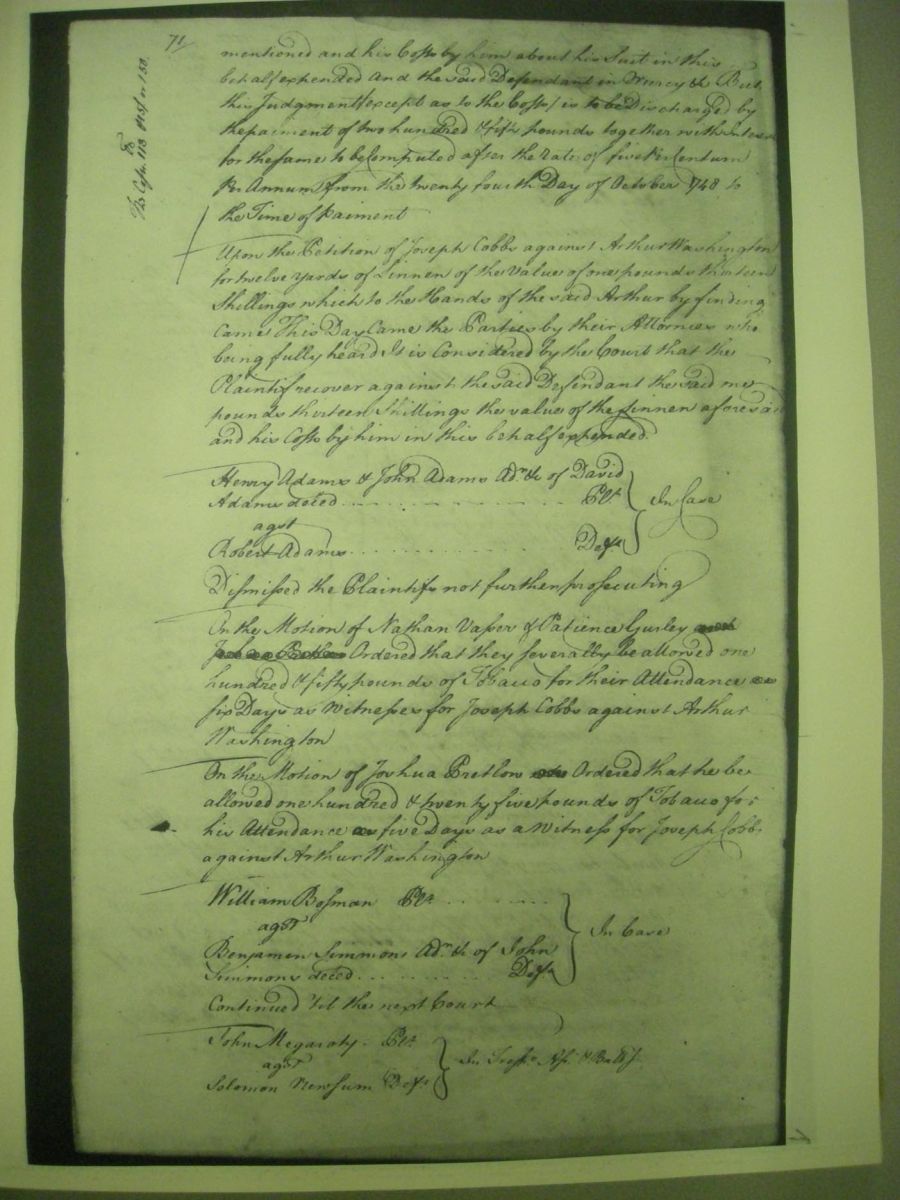 71
mentioned and his Costs by him about his Suit in this
behalf expended And the said Defendant in Mercy &c But
this Judgment (except as to the Costs) is to be Discharged by
the paiment of two hundred & fifty pounds together with Interest
for the same to be Computed after the rate of five Per Centum
Per Annum from the twenty fourth Day of October 1748 to
the Time of paiment
Upon the Petition of Joseph Cobbs against Arthur Washington
for twelve yards of Linnen of the Value of one pounds thirteen
Shillings which to the Hands of the said Arthur by finding
came This Day Came the Parties by their Attornies who
being fully heard It is Considered by the Court that the
Plaintif recover against the said Defendant the said one
pounds thirteen Shillings the value of the Linnen aforesaid
and his Costs by him in this behalf expended.
Henry Adams & John Adams Adm. &c of David
Adams deced Plt. In Case
agst
Robert Adams Deft
Dismissed the Plaintifs not further prosecuting
On the Motion of Nathan Vasser & Patience Gurley
Ordered that they severally be allowed one
hundred & fifty pounds of Tobacco for their Attendance
six Days as Witnesses for Joseph Cobbs against Arthur
Washington
On the Motion of Joshua Pretlow Ordered that he be
allowed one hundred & twenty five pounds of Tobacco for
his Attendance five Days as a Witness for Joseph Cobbs
against Arthur Washington
William Bosman Plt.
agst In Case
Benjamin Simmons Adm. &c of John
Simmons deced Deft
Continued 'til the next Court
John Megaraty Plt.
agst In Tresps. Asst. & Batt.
Solomon Newsum Deft